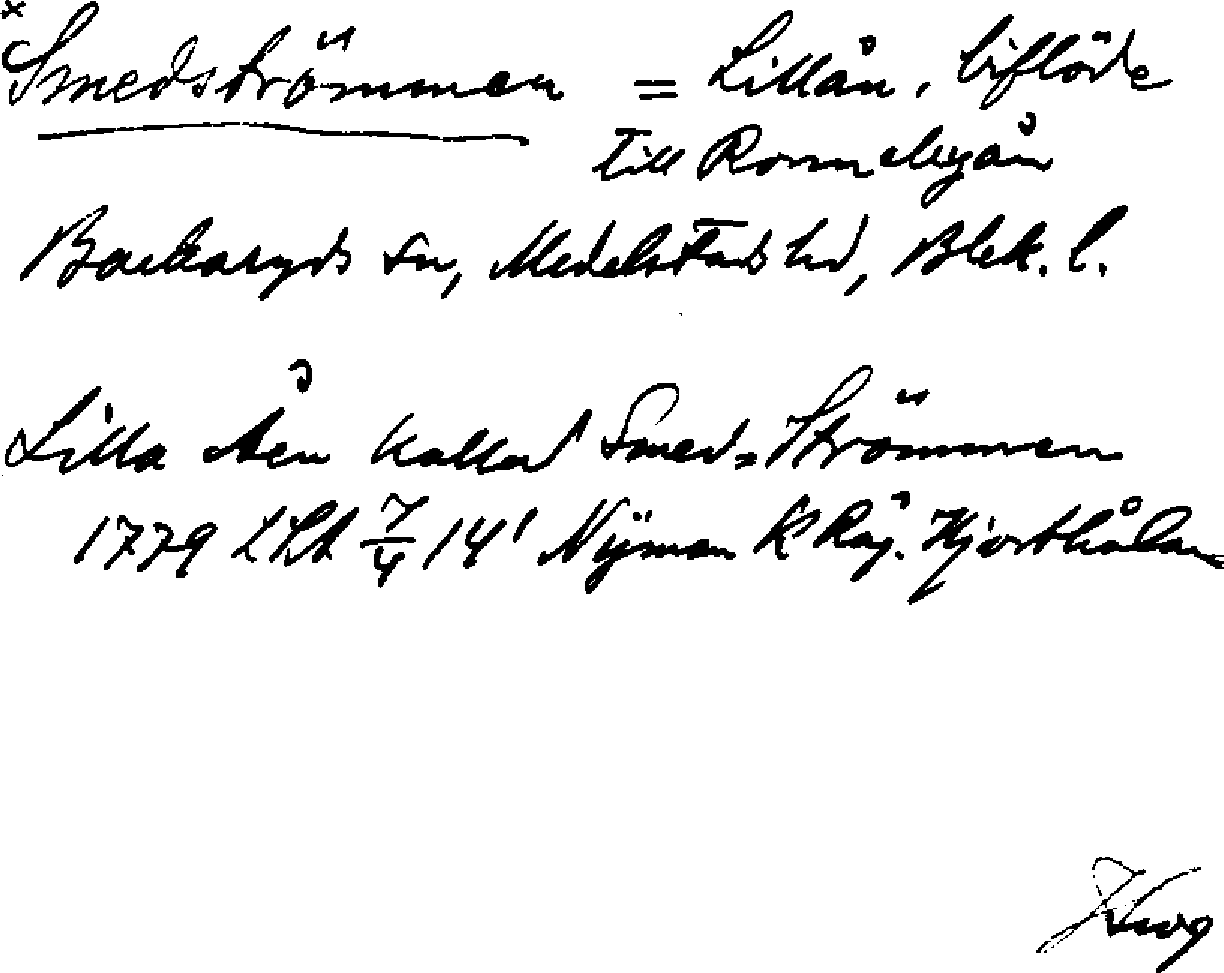 × Smedströmmen = Lillån, biflöde
till Ronnebyån
Backaryds sn, Medelstads hd, Blek. l.
Lilla Åen kallad Smed=Strömmen
1779 7/4 14' Nÿman Hjorthålan